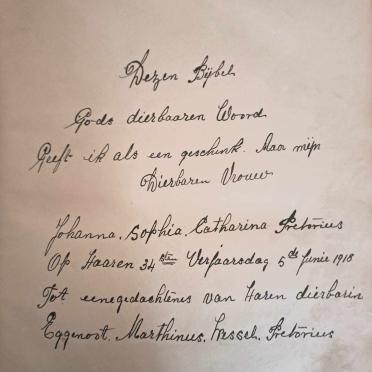 Dezen Bijbel
Gods dierbaaren Woord
Geeft ik als een geschenk. Aaa mijn
Dierbaren Vrouw
Johanna. Sophia. Catharina Pretorius
Op Haaren 34ste Verjaarsdag 5de Junie 1918
Tot eenegedachtenis van Haren dierbarin
Eggenoot. Marthinus. Wessel. Pretorius